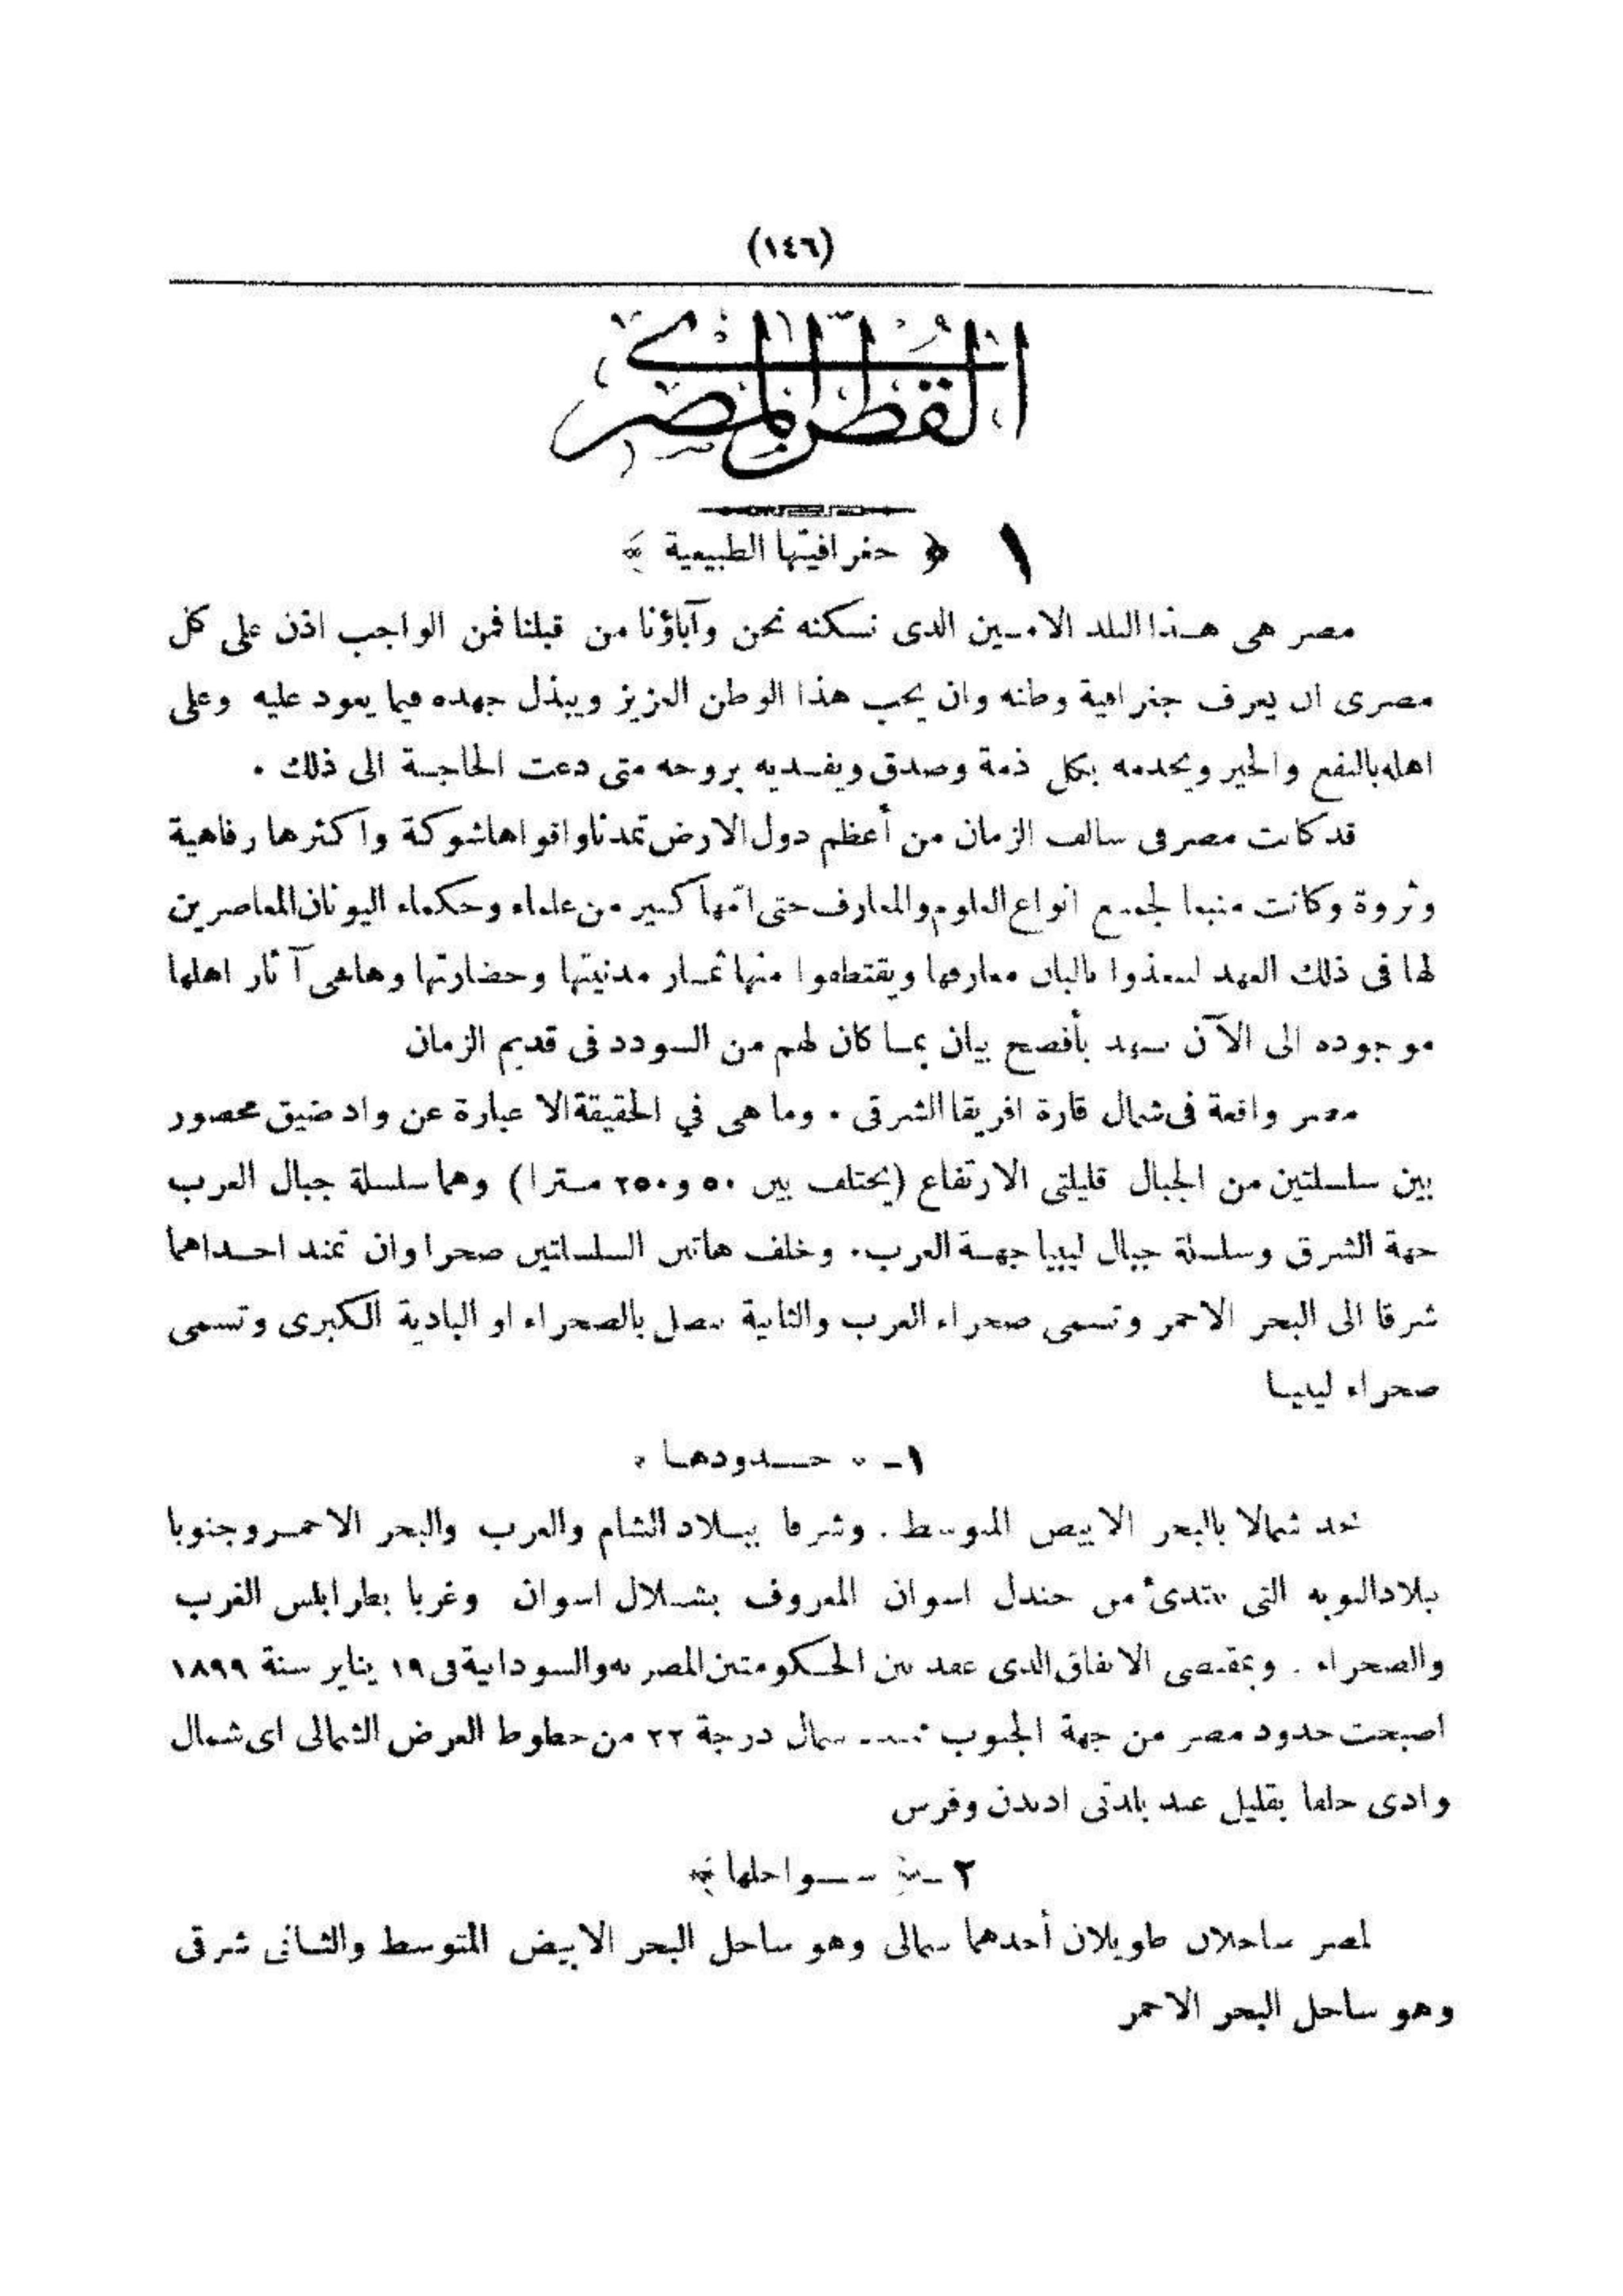 (١٤٦)
القطر المصرى
١ ﴿ جغرافيتها الطبيعية ﴾
مصر هى هذا البلد الامين الذى نسكنه نحن وآباؤنا من قبلنا فمن الواجب اذن على كل
مصرى ان يعرف جغرافية وطنه وان يحب هذا الوطن العزيز ويبذل جهده فيما يعود عليه وعلى
اهله بالنفع والخير ويخدمه بكل ذمة وصدق ويفديه بروحه متى دعت الحاجة الى ذلك .
قد كانت مصر فى سالف الزمان من أعظم دول الارض تمدنا واقواها شوكة واكثرها رفاهية
وثروة وكانت منبعا لجميع انواع العلوم والمعارف حتى اتمها كثير من علماء وحكماء اليونان المعاصرين
لها فى ذلك العهد ليتغذوا بالبان معارفها ويقتطفوا منها ثمار مدنيتها وحضارتها وهاهى آثار اهلها
موجوده الى الآن تشهد بأفصح بيان بما كان لهم من السودد فى قديم الزمان
مصر واقعة فى شمال قارة افريقا الشرقى . وما هى في الحقيقة الا عبارة عن واد ضيق محصور
بين سلسلتين من الجبال قليلتى الارتفاع (يختلف بين ٥٠ و ٢٥٠ مترا) وهما سلسلة جبال العرب
جهة الشرق وسلسلة جبال ليبيا جهة الغرب. وخلف هاتين السلسلتين صحراوان تمتد احداهما
شرقا الى البحر الاحمر وتسمى صحراء العرب والثانية تتصل بالصحراء او البادية الكبرى وتسمى
صحراء ليبيا
١ - حدودها
تحد شمالا بالبحر الابيض المتوسط . وشرقا ببلاد الشام والعرب والبحر الاحمر وجنوبا
ببلاد النوبه التى تبتدئ من جندل اسوان المعروف بشلال اسوان وغربا بطرابلس الغرب
والصحراء . وبمقتضى الاتفاق الذى عقد بين الحكومتين المصريه والسودانية فى ١٩ يناير سنة ١٨٩٩
اصبحت حدود مصر من جهة الجنوب شمال درجة ٢٢ من خطوط العرض الشمالى اى شمال
وادى حلفا بقليل عند بلدتى ادندن وفرس
٢ - ﴿ سواحلها ﴾
لمصر ساحلان طويلان أحدهما شمالى وهو ساحل البحر الابيض المتوسط والثانى شرقى
وهو ساحل البحر الاحمر